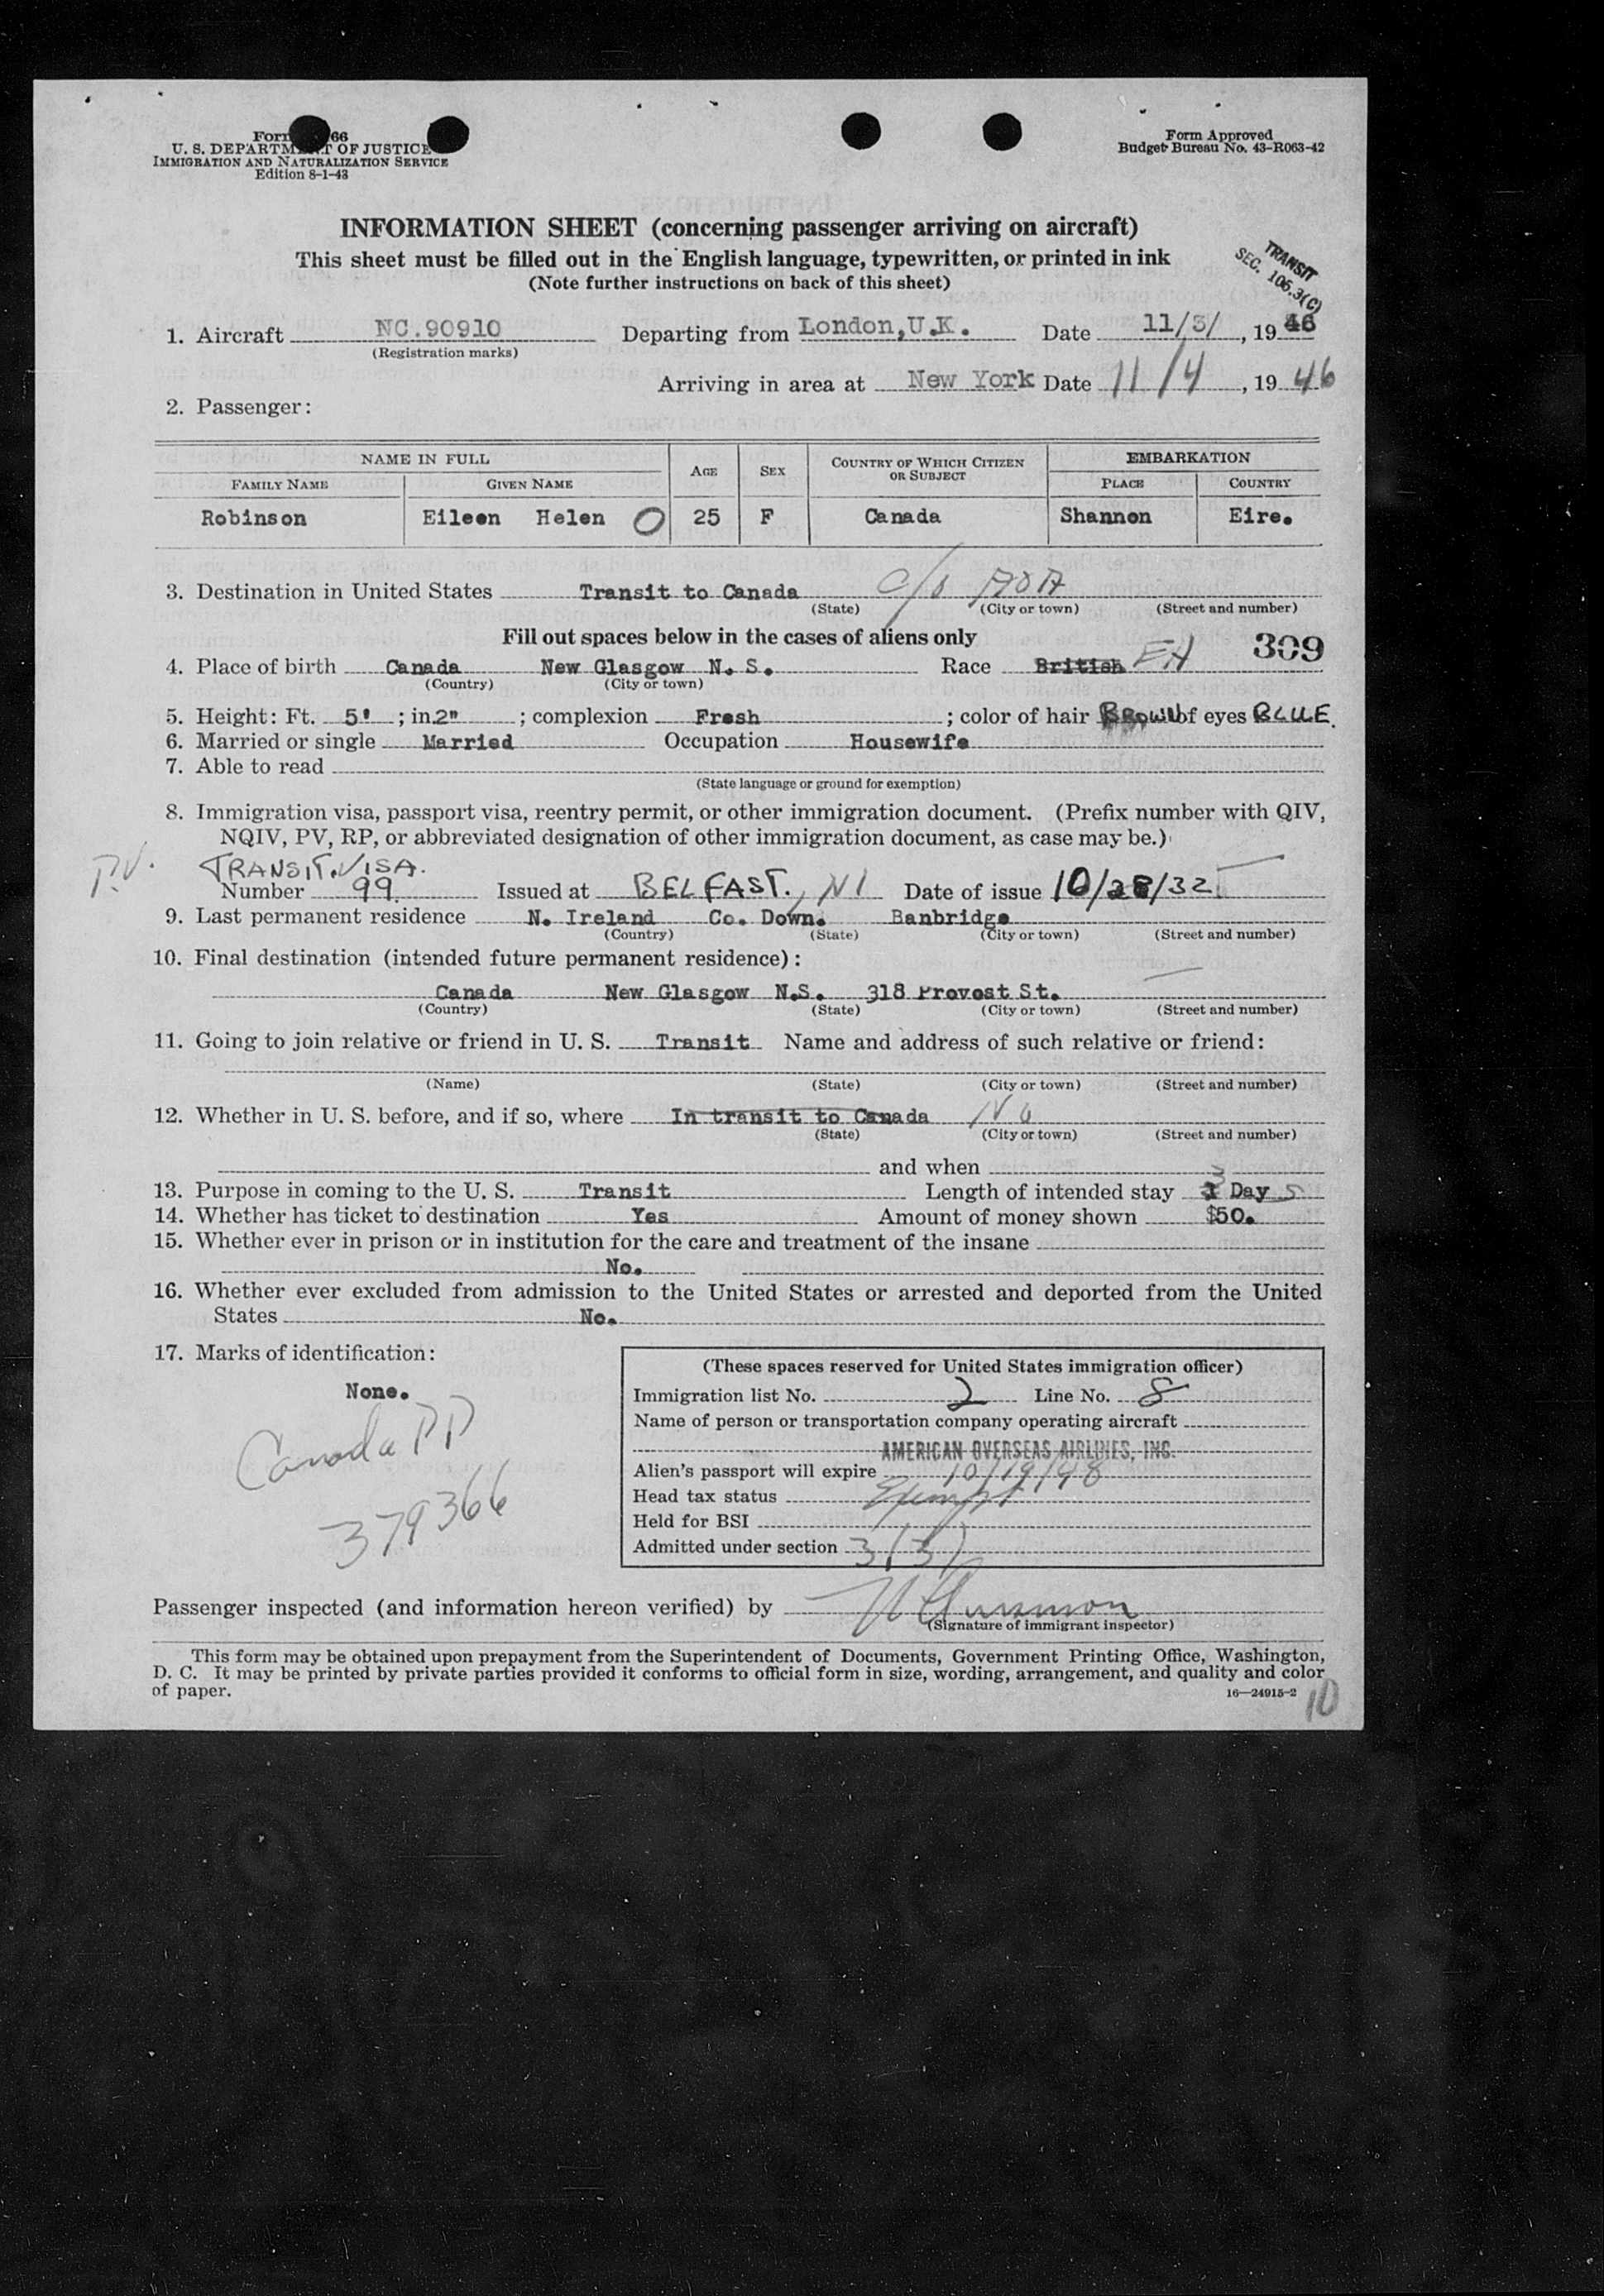 Form 66
U. S. DEPARTMENT OF JUSTICE
IMMIGRATION AND NATURALIZATION SERVICE
Edition 8-1-43
Form Approved
Budget Bureau No. 43-R063-42
INFORMATION SHEET (concerning passenger arriving on aircraft)
This sheet must be filled out in the English language, typewritten, or printed in ink
(Note further instructions on back of this sheet)
TRANSIT
SEC. 106.3(C)
1. Aircraft NC.90910 Departing from London, U.K. Date 11/3/, 1946
(Registration marks)
Arriving in area at New York Date 11/4, 1946
2. Passenger:
NAME IN FULL AGE SEX COUNTRY OF WHICH CITIZEN OR SUBJECT EMBARKATION
FAMILY NAME GIVEN NAME PLACE COUNTRY
Robinson Eileen Helen O 25 F Canada Shannon Eire.
3. Destination in United States Transit to Canada c/o AOA
(State) (City or town) (Street and number)
Fill out spaces below in the cases of aliens only
309
4. Place of birth Canada New Glasgow N. S. Race British
(Country) (City or town)
5. Height: Ft. 5' ; in. 2" ; complexion Fresh ; color of hair BROWN of eyes BLUE.
6. Married or single Married Occupation Housewife
7. Able to read
(State language or ground for exemption)
8. Immigration visa, passport visa, reentry permit, or other immigration document. (Prefix number with QIV,
NQIV, PV, RP, or abbreviated designation of other immigration document, as case may be.)
P.V. TRANSIT. VISA.
Number 99. Issued at BELFAST., NI Date of issue 10/28/32
9. Last permanent residence N. Ireland Co. Down. Banbridge
(Country) (State) (City or town) (Street and number)
10. Final destination (intended future permanent residence):
Canada New Glasgow N.S. 318 Provost St.
(Country) (State) (City or town) (Street and number)
11. Going to join relative or friend in U. S. Transit Name and address of such relative or friend:
(Name) (State) (City or town) (Street and number)
12. Whether in U. S. before, and if so, where In transit to Canada No
(State) (City or town) (Street and number)
and when
13. Purpose in coming to the U. S. Transit Length of intended stay 3 Days
14. Whether has ticket to destination Yes Amount of money shown $50.
15. Whether ever in prison or in institution for the care and treatment of the insane
No.
16. Whether ever excluded from admission to the United States or arrested and deported from the United
States No.
17. Marks of identification:
None.
Canada PP
379366
(These spaces reserved for United States immigration officer)
Immigration list No. 2 Line No. 8
Name of person or transportation company operating aircraft
AMERICAN OVERSEAS AIRLINES, INC.
Alien's passport will expire 10/19/48
Head tax status Exempt
Held for BSI
Admitted under section 3(3)
Passenger inspected (and information hereon verified) by
(Signature of immigrant inspector)
This form may be obtained upon prepayment from the Superintendent of Documents, Government Printing Office, Washington,
D. C. It may be printed by private parties provided it conforms to official form in size, wording, arrangement, and quality and color
of paper.
16—24915-2
10